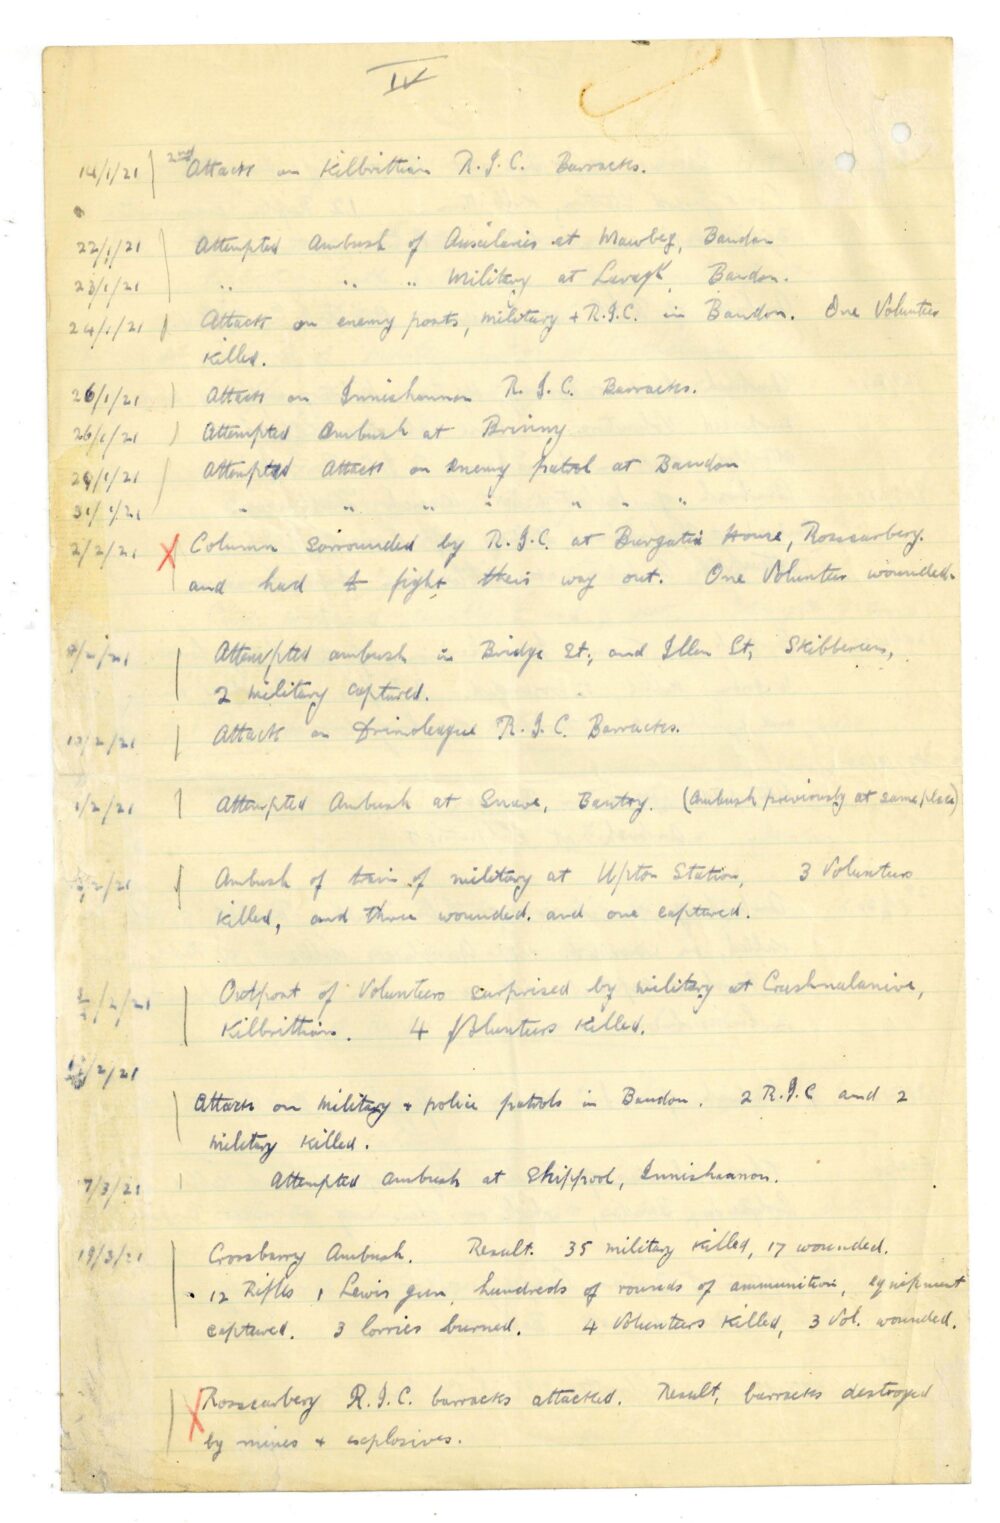 IV
14/1/21 2nd Attack on Kilbrittian R.I.C. Barracks.
22/1/21 Attempted Ambush of Auxilaries at Mawbeg, Bandon
23/1/21 " " " Military at Laragh, Bandon.
24/1/21 Attack on enemy posts, military + R.I.C. in Bandon. One Volunteer
killed.
26/1/21 Attack on Innishannon R.I.C. Barracks.
26/1/21 Attempted ambush at Brinny
29/1/21 Attempted attack on enemy patrol at Bandon
31/1/21 " " " " " " "
2/2/21 X Column sorrounded by R.I.C. at Burgatia House, Rosscarbery.
and had to fight their way out. One Volunteer wounded.
/2/21 Attempted ambush in Bridge St., and Illen St, Skibbereen,
2 military captured.
/2/21 Attack on Drimoleague R.I.C. Barracks.
/2/21 Attempted Ambush at Snave, Bantry. (Ambush previously at same place)
/2/21 Ambush of train of military at Upton Station, 3 Volunteers
killed, and three wounded. and one captured.
/2/21 Outpost of Volunteers surprised by military at Crushnalanive,
Kilbrittian. 4 Volunteers killed.
/2/21
Attack on military + police patrols in Bandon. 2 R.I.C and 2
military killed.
7/3/21 Attempted ambush at Shippool, Innishannon.
19/3/21 Crossbarry Ambush. Result. 35 military killed, 17 wounded.
12 Rifles 1 Lewis gun, hundreds of rounds of ammunition, equipment
captured. 3 lorries burned. 4 Volunteers killed, 3 Vol. wounded.
X Rosscarbery R.I.C. barracks attacked. Result, barracks destroyed
by mines + explosives.